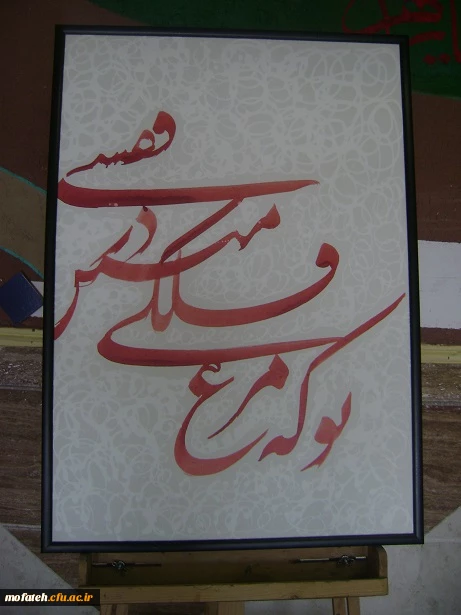 تو که مرغ
فلکی
در
قفسی
mofateh.cfu.ac.ir